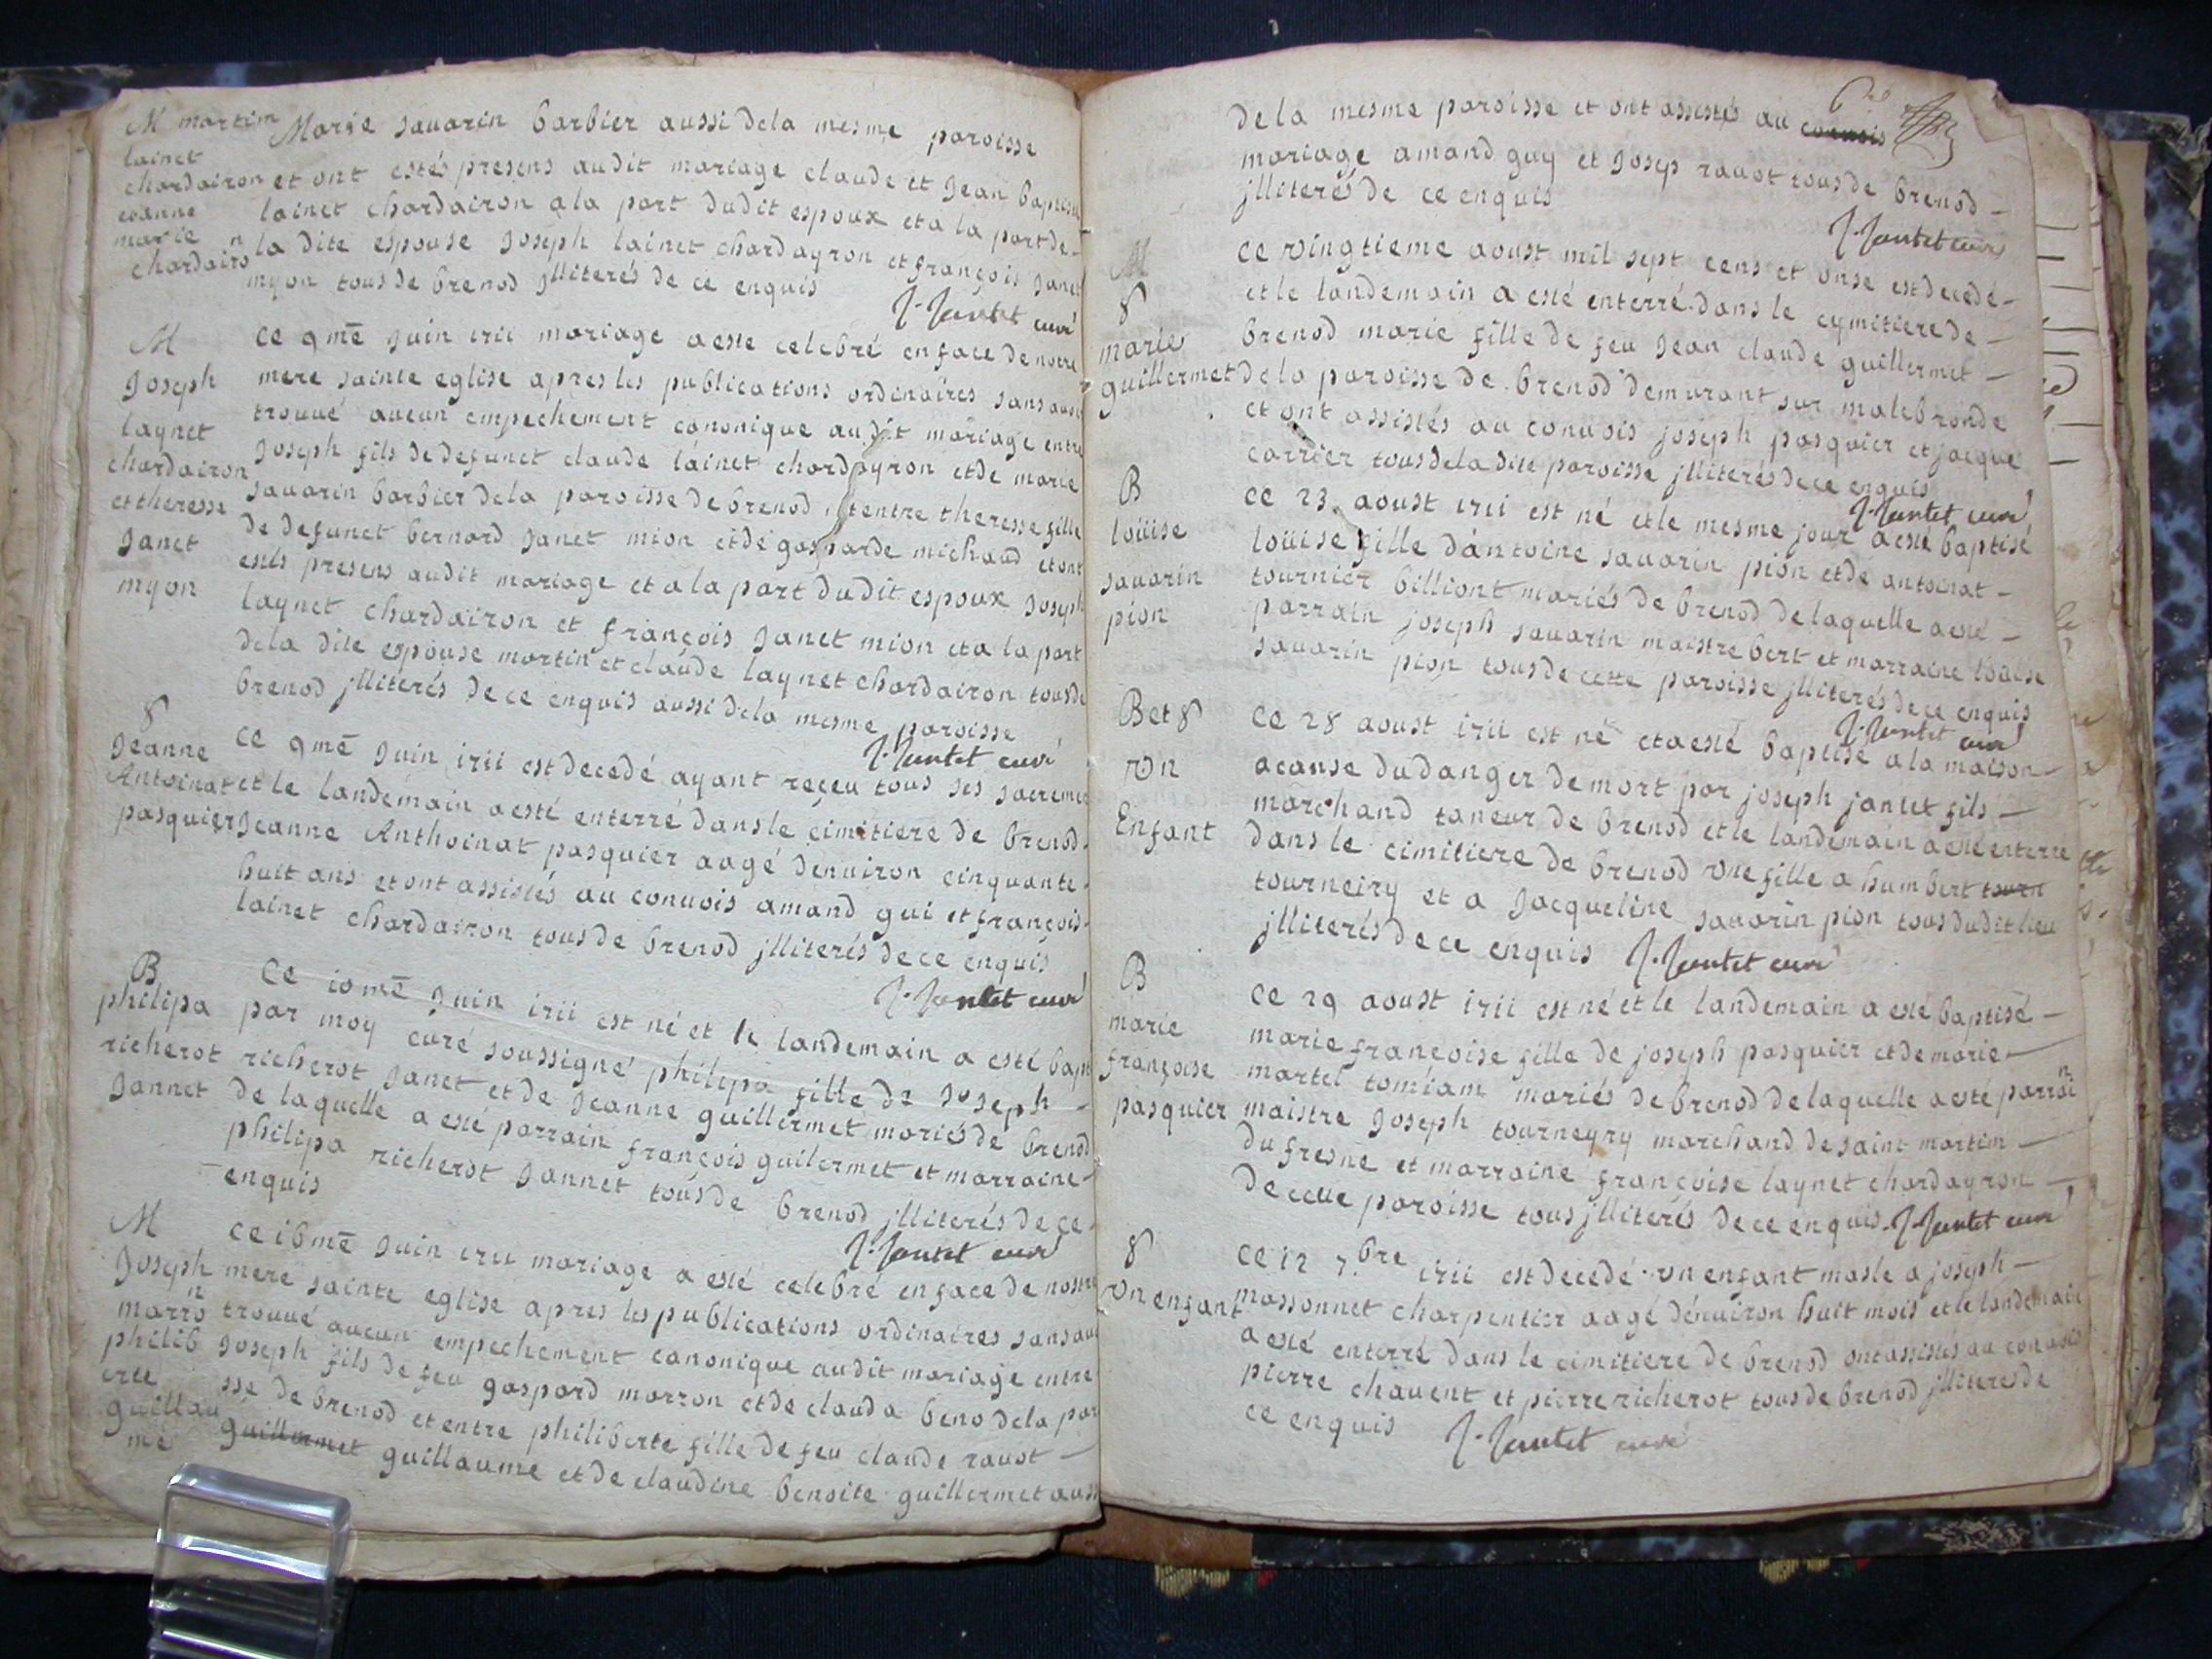 M martim
lainet
chardairon
etanne
marie
chardairon
Marie sauarin barbier aussi dela mesme paroisse
et ont estés presens audit mariage claude et Jean baptiste
lainet chardairon a la part dudit espoux et a la part de
la dite espouse Joseph lainet chardayron et françois Janet
myon tous de brenod jlliterés de ce enquis
J. Jantet curé
M
Joseph
laynet
chardairon
et theresse
Janet
myon
ce 9mē Juin 1711 mariage a esté celebré en face de nostre
mere sainte eglise apres les publications ordinaires sans auoir
trouué aucun empechement canonique audit mariage entre
Joseph fils de defunct claude lainet chardayron et de marie
sauarin barbier dela paroisse de brenod et entre theresse fille
de defunct bernard Janet mion et de gasparde michaud et ont
estés presens audit mariage et a la part dudit espoux Joseph
laynet chardairon et françois Janet mion et a la part
dela dite espouse martin et claude laynet chardairon tous de
brenod jlliterés de ce enquis aussi dela mesme paroisse
J. Jantet curé
8
Jeanne
Antoinat
pasquier
ce 9mē Juin 1711 est decedé ayant reçeu tous ses sacremens
et le landemain a esté enterré dans le cimitiere de brenod
Jeanne Anthoinat pasquier aagé denuiron cinquante
huit ans et ont assistés au conuois amand gui et françois
lainet chardairon tous de brenod jlliterés de ce enquis
J. Jantet curé
B
philipa
richerot
Jannet
Ce 10mē Juin 1711 est né et le landemain a esté bapt
par moy curé soussigné philipa fille de Joseph
richerot Janet et de Jeanne guillermet mariés de brenod
de laquelle a esté parrain françois guilermet et marraine
philipa richerot Jannet tous de brenod jlliterés de ce
enquis
J. Jantet curé
M
Joseph
marron
philib
erte
guillau
me
ce 16mē Juin 1711 mariage a esté celebré en face de nostre
mere sainte eglise apres les publications ordinaires sans auoir
trouué aucun empechement canonique audit mariage entre
Joseph fils de feu gaspard marron et de clauda beno dela paroi
sse de brenod et entre philiberte fille de feu claude rauot
guillermet guillaume et de claudine benoite guillermet aussi
de la mesme paroisse et ont assistés au conuois
mariage amand guy et Josep rauot tous de brenod
jlliterés de ce enquis
J. Jantet curé
M
8
marie
guillermet
ce vingtieme aoust mil sept cens et onse est decedé
et le landemain a esté enterré dans le cymitiere de
brenod marie fille de feu Jean claude guillermet
dela paroisse de brenod demurant sur malebronde
et ont assistés au conuois joseph pasquier et jacque
carrier tous dela dite paroisse jlliterés de ce enquis
J. Jantet curé
B
loüise
sauarin
pion
ce 23 aoust 1711 est né et le mesme jour a esté baptisé
loüise fille dantoine sauarin pion et de antoinat
tournier billiont mariés de brenod de laquelle a esté
parrain joseph sauarin maistre bert et marraine loüise
sauarin pion tous de cette paroisse jlliterés de ce enquis
J. Jantet curé
B et 8
vn
Enfant
ce 28 aoust 1711 est né et a esté baptisé a la maison
a cause du danger de mort par joseph jantet fils
marchand taneur de brenod et le landemain a esté enterre
dans le cimitiere de brenod vne fille a humbert tourn
tourneiry et a Jacqueline sauarin pion tous dudit lieu
jlliterés de ce enquis J. Jantet curé
B
marie
françoise
pasquier
ce 29 aoust 1711 est né et le landemain a esté baptisé
marie françoise fille de joseph pasquier et de marie
martel tomiam mariés de brenod de laquelle a esté parrain
maistre Joseph tourneyry marchand de saint martim
du fresne et marraine françoise laynet chardayron
de cette paroisse tous jlliterés de ce enquis J. Jantet curé
8
vn enfant
ce 12 7.bre 1711 est decedé vn enfant masle a joseph
massonnet charpentier aagé denuiron huit mois et le landemain
a esté enterré dans le cimitiere de brenod ont assistés au conuois
pierre chauent et pierre richerot tous de brenod jlliteres de
ce enquis J. Jantet curé